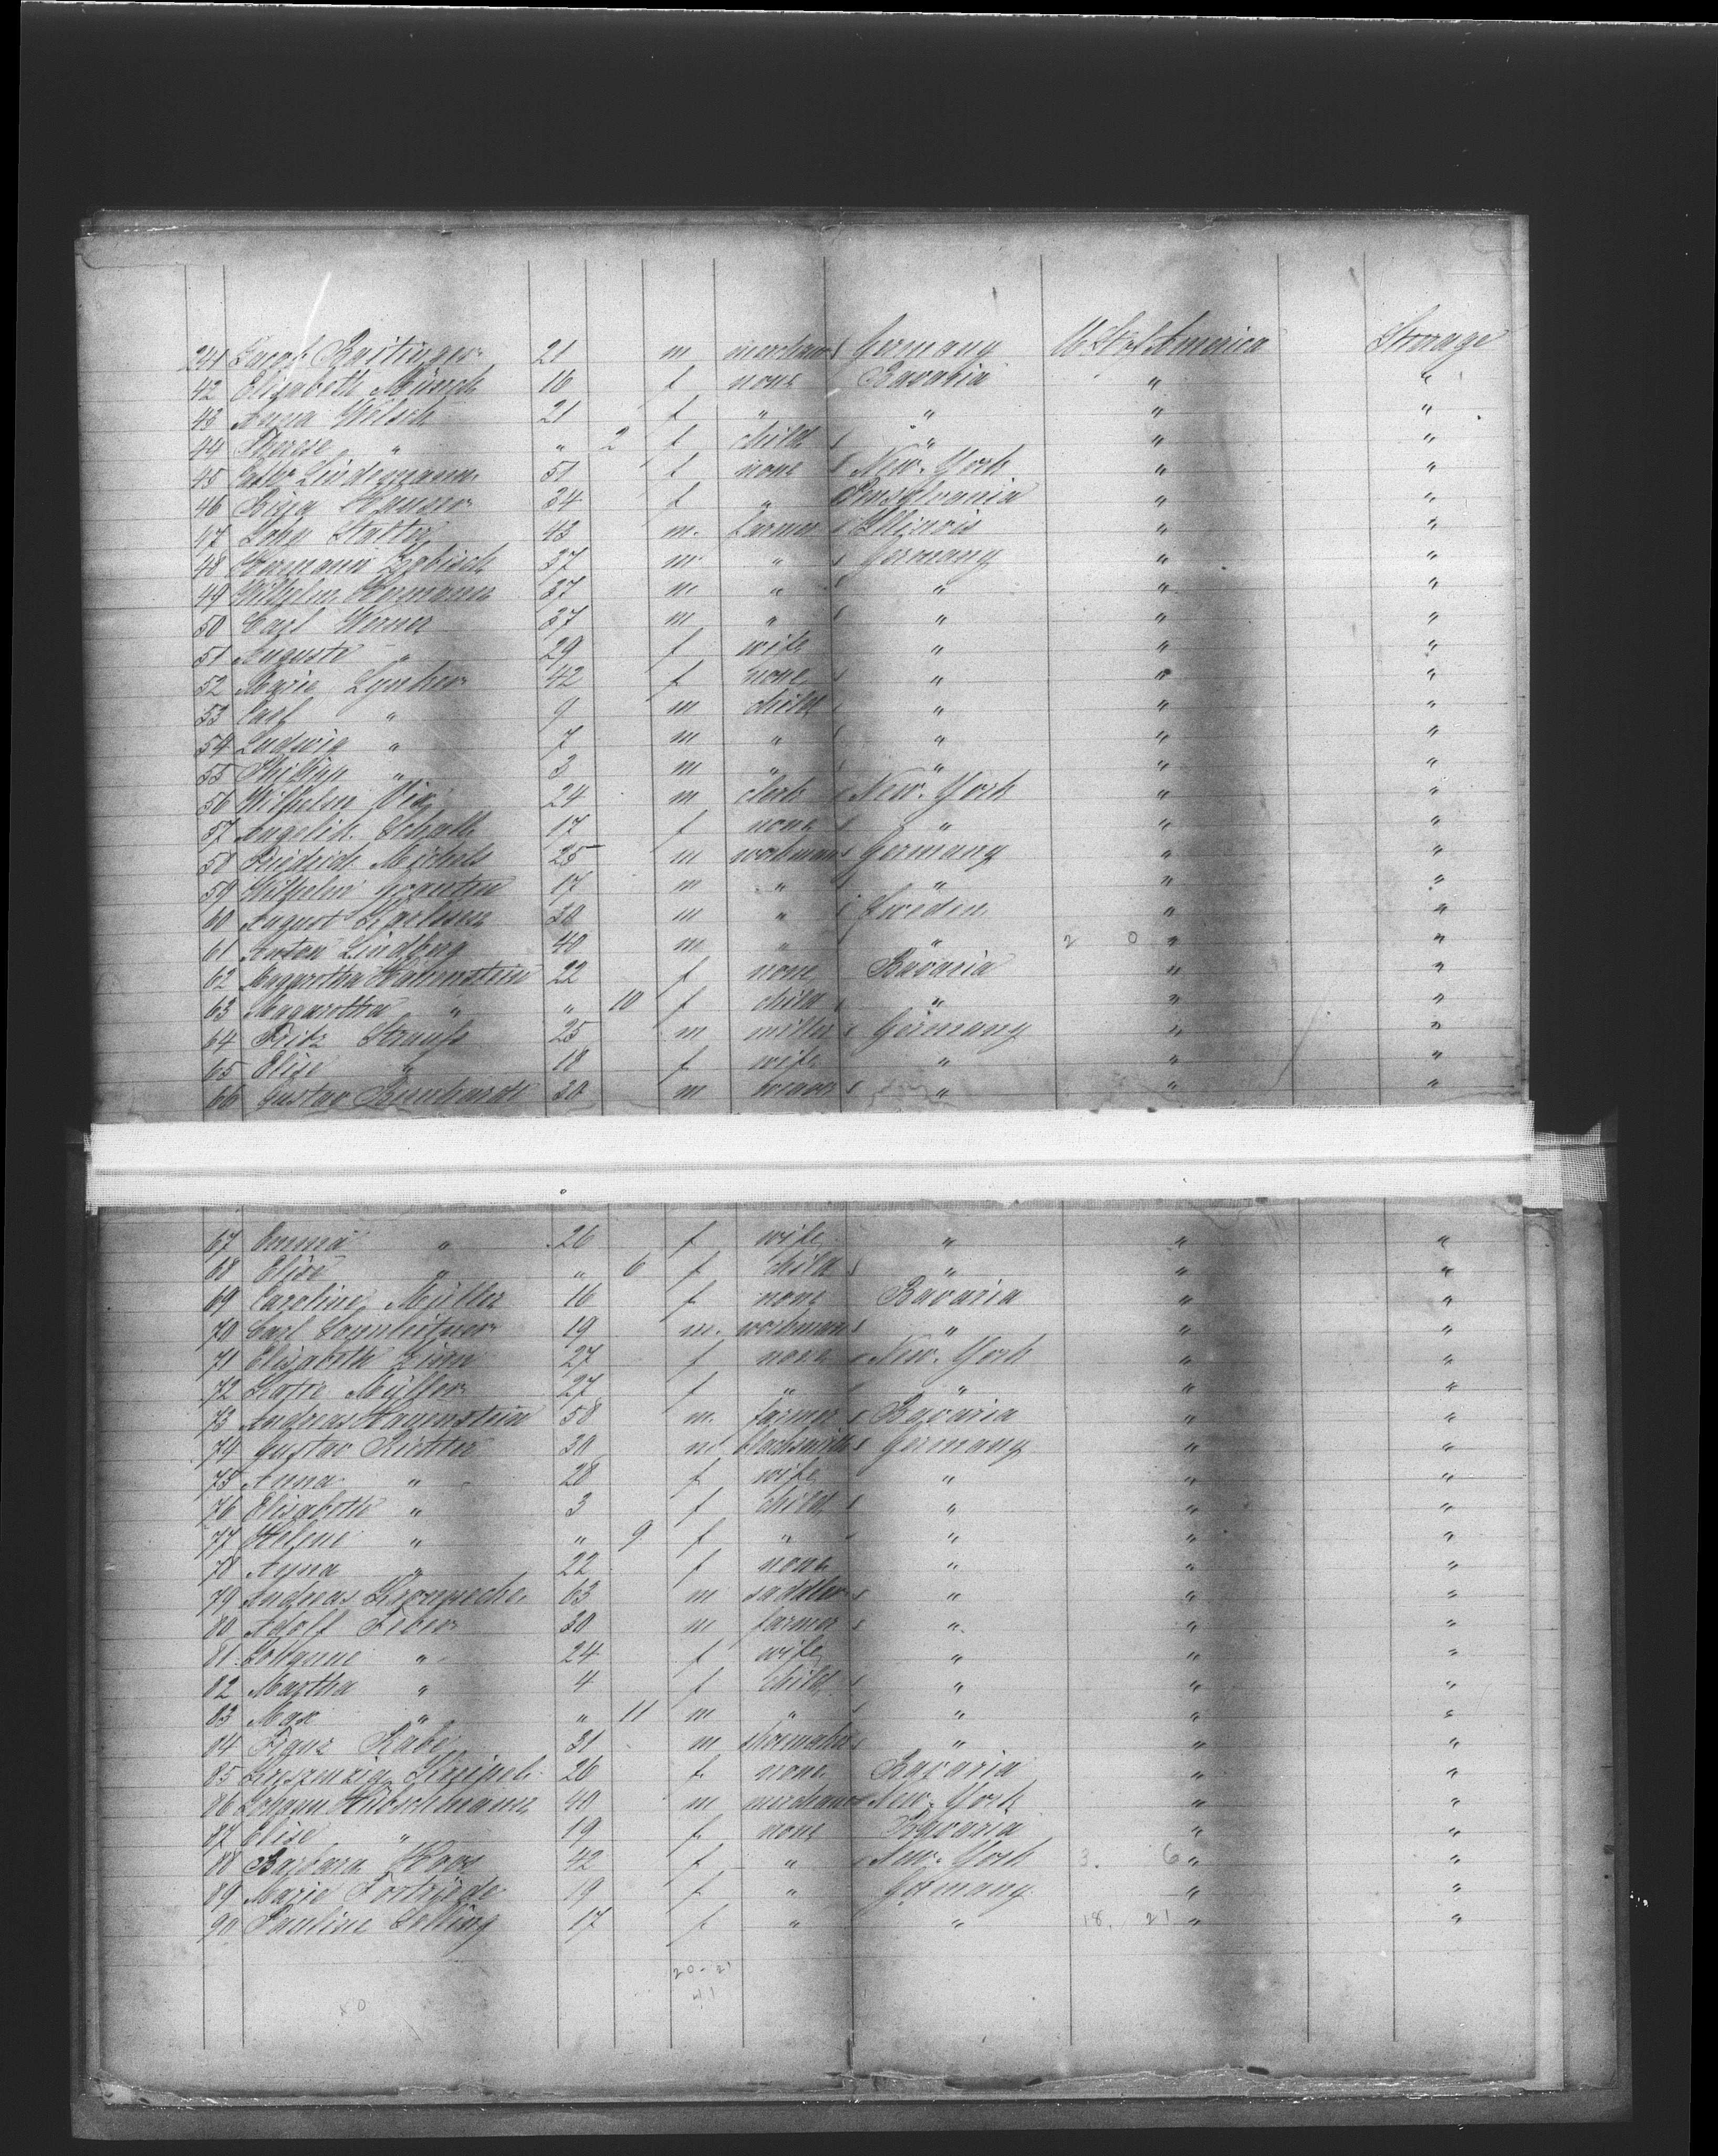 241 Jacob Bastinger 21 m merchant Germany U St of America Steerage
42 Elisabeth Münch 16 f none Bavaria " "
43 Anna 21 f " " " "
44 Therese " " 2 f child " " "
45 Lindemann 51 f none New-York " "
46 34 f " Pensylvania " "
47 John Stalter 43 m. farmer Illinois " "
48 Hermann 37 m " Germany " "
49 Wilhelm Hermann 37 m " " " "
50 Carl Werner 37 m " " " "
51 Auguste " 29 f wife " " "
52 Marie 42 f none " " "
53 Carl " 9 m child " " "
54 Ludwig " 7 m " " " "
55 Philipp " 3 m " " " "
56 Wilhelm Vix 24 m clerk New-York " "
57 Schall 17 f none " " "
58 Friedrich Michels 25 m workman Germany " "
59 Wilhelm 17 m " " " "
60 August 30 m " Sweden " "
61 Anton Lindberg 40 m " " 2 0 " "
62 Margaretha Hauenstein 22 f none Bavaria " "
63 Margaretha " " 10 f child " " "
64 Fritz Strauß 25 m miller Germany " "
65 Elise " 18 f wife " " "
66 Gustav Bernhardt 30 m " " "
67 Emma " 26 f wife " " "
68 Elise " " 6 f child " " "
69 Caroline Müller 16 f none Bavaria " "
70 Carl Sonnleitner 19 m. workman " " "
71 Elisabeth Zinn 27 f none New-York " "
72 Müller 27 f " " " "
73 Andreas Hauenstein 58 m. farmer Bavaria " "
74 Gustav Richter 30 m blacksmith Germany " "
75 Anna " 28 f wife " " "
76 Elisabeth " 3 f child " " "
77 Helene " " 9 f " " " "
78 Anna " 22 f none " " "
79 Andreas 63 m saddler " " "
80 Adolf 30 m farmer " " "
81 Johanne " 24 f wife " " "
82 Martha " 4 f child " " "
83 Max " " 11 m " " " "
84 Franz Rabe 31 m shoemaker " " "
85 26 f none Bavaria " "
86 Johann 40 m merchant New-York " "
87 Elise " 19 f none Bavaria " "
88 Barbara 42 f " New-York 3. 6 " "
89 Marie 19 f " Germany " "
90 Pauline Selling 17 f " " 18. 21 " "
20-21
41